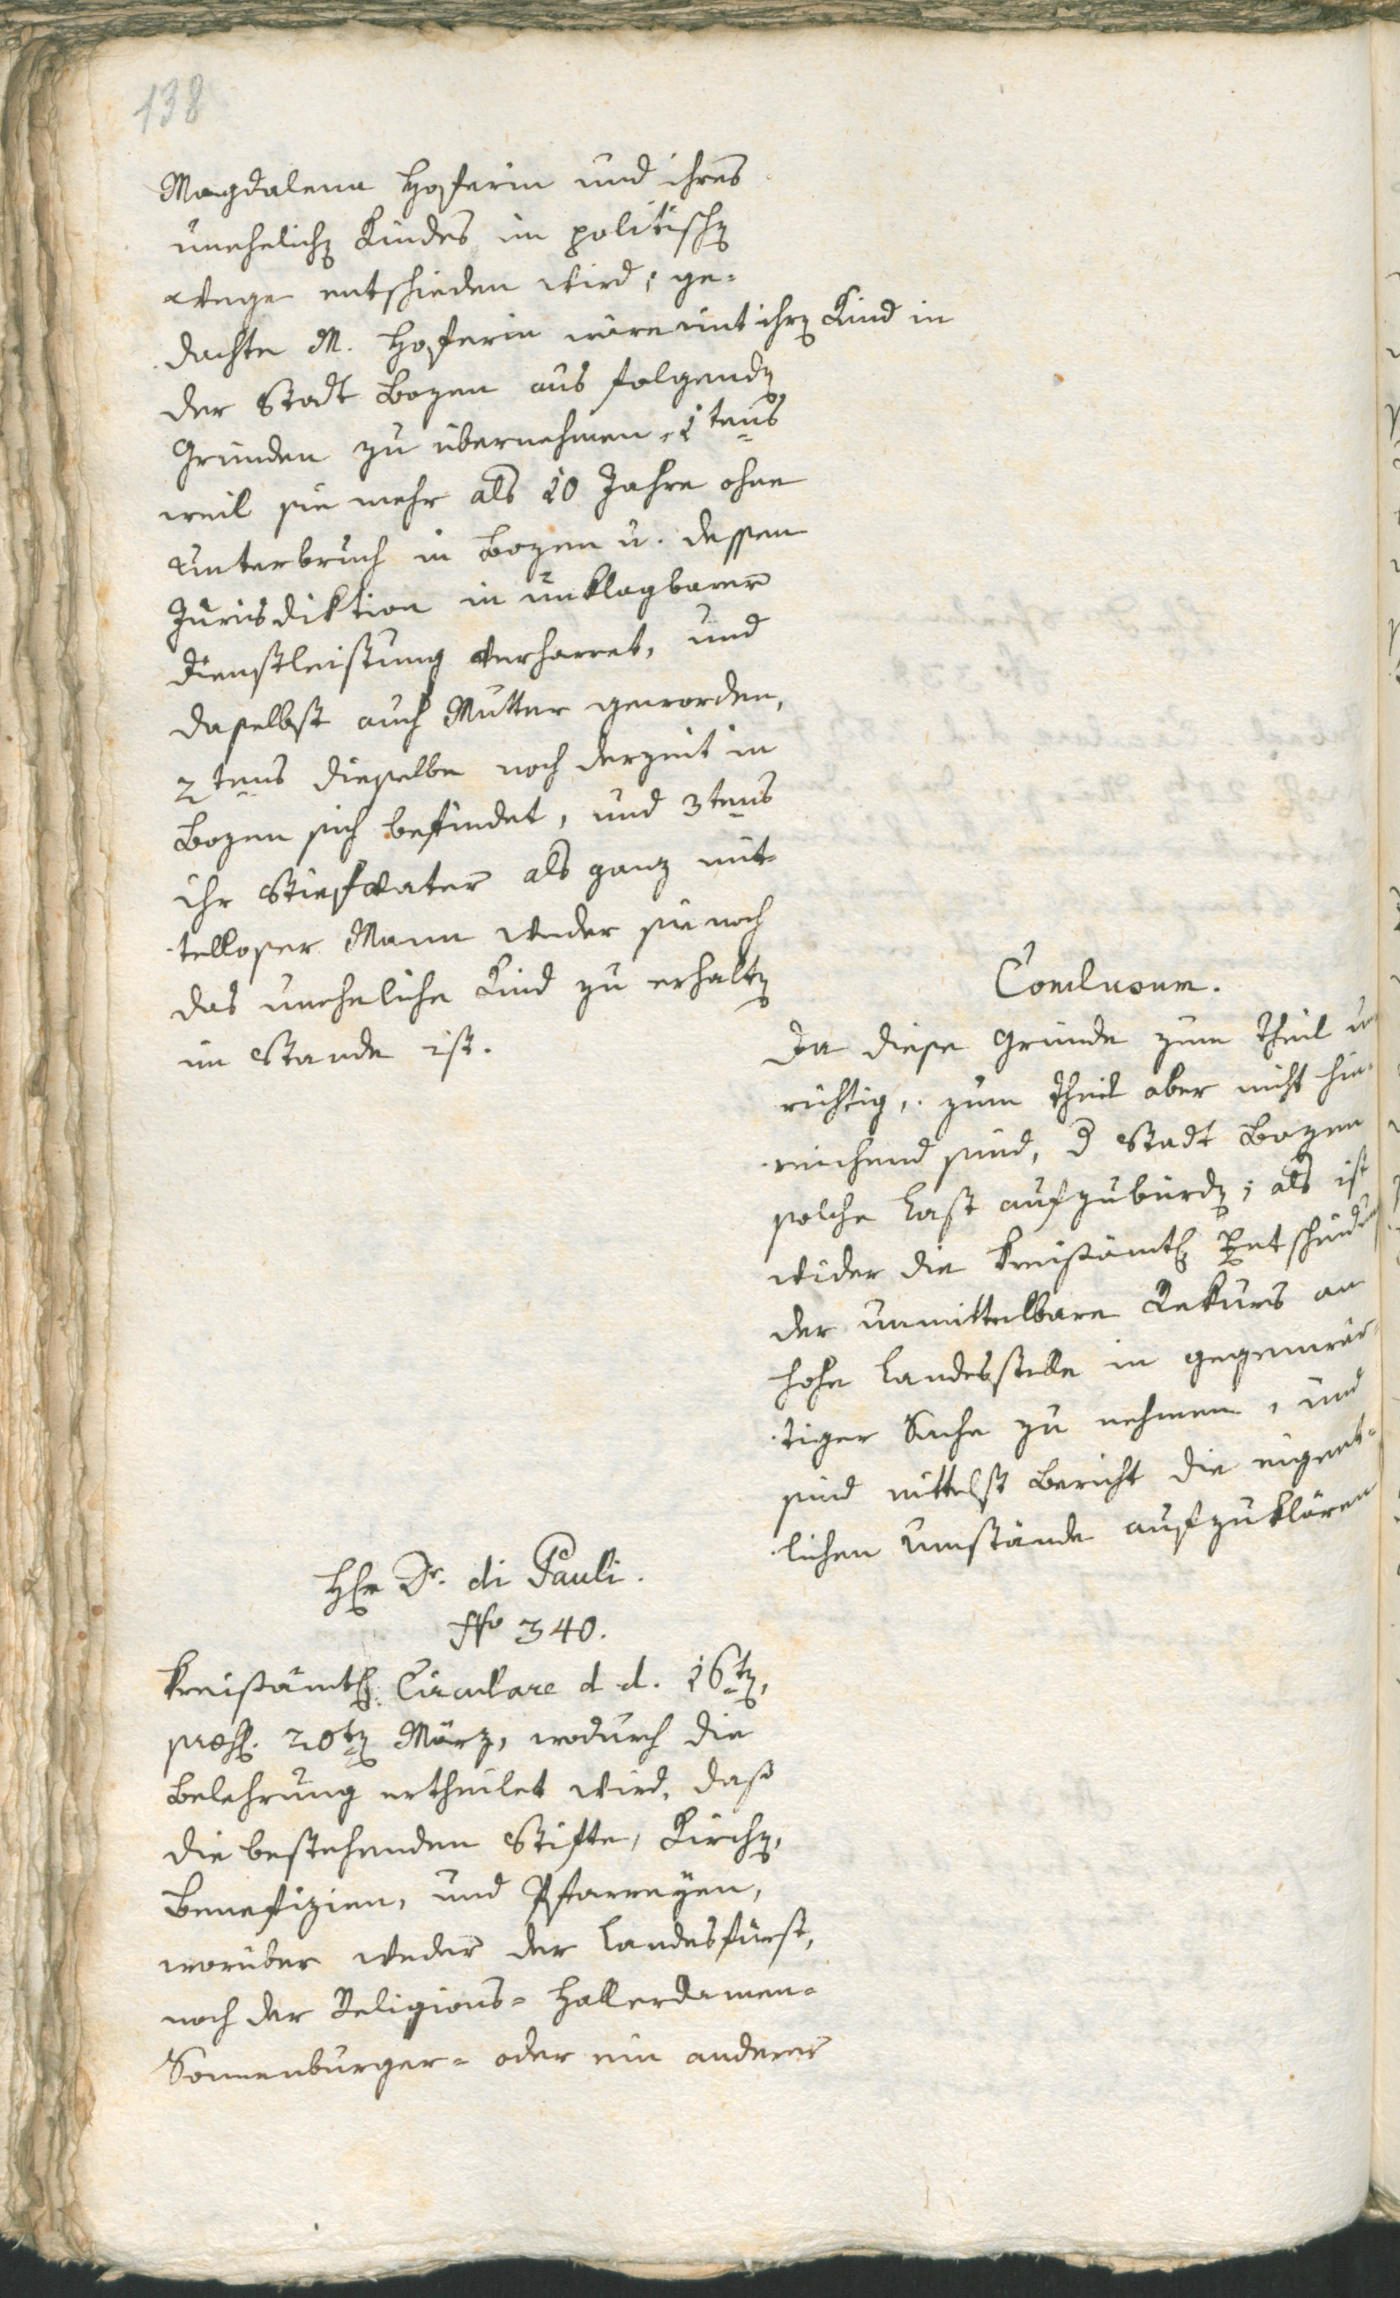 138
Magdalena Hoferin und ihres
unehelichen Kindes im politischen
Wege entschieden wird; ge=
dachte M. Hoferin wäre mit ihren Kind in
der Stadt Bozen aus folgenden
Gründen zu übernehmen. 1tens
weil sie mehr als 10 Jahre ohne
Unterbruch in Bozen u. dessen
Jurisdiktion in unklagbarer
Dienstleistung verharret, und
daselbst auch Mutter geworden,
2tens dieselbe noch derzeit in
Bozen sich befindet, und 3tens
ihr Stiefvater als ganz mit=
telloser Mann weder sie noch
das uneheliche Kind zu erhalten
im Stande ist.
Conclusum.
Da diese Gründe zum Theil un
richtig, zum Theil aber nicht hin=
reichend sind, d Stadt Bozen
solche Last aufzubürden; als ist
wider die kreisämtl Entscheidung
der unmittelbare Rekurs an
hohe Landesstelle in gegenwär=
tiger Sache zu nehmen, und
sind mittelst Bericht die eigent=
lichen Umstände aufzuklären
H[err] Dr. di Pauli.
No 340.
Kreisämtl. Circulare d. d. 16ten,
præs. 20ten März, wodurch die
Belehrung ertheilet wird, daß
die bestehenden Stifte, Kirchen,
Benefizien, und Pfarreyen,
worüber weder der Landesfürst,
noch der Religions= Hallerdamen=
Sonnenburger= oder ein anderer